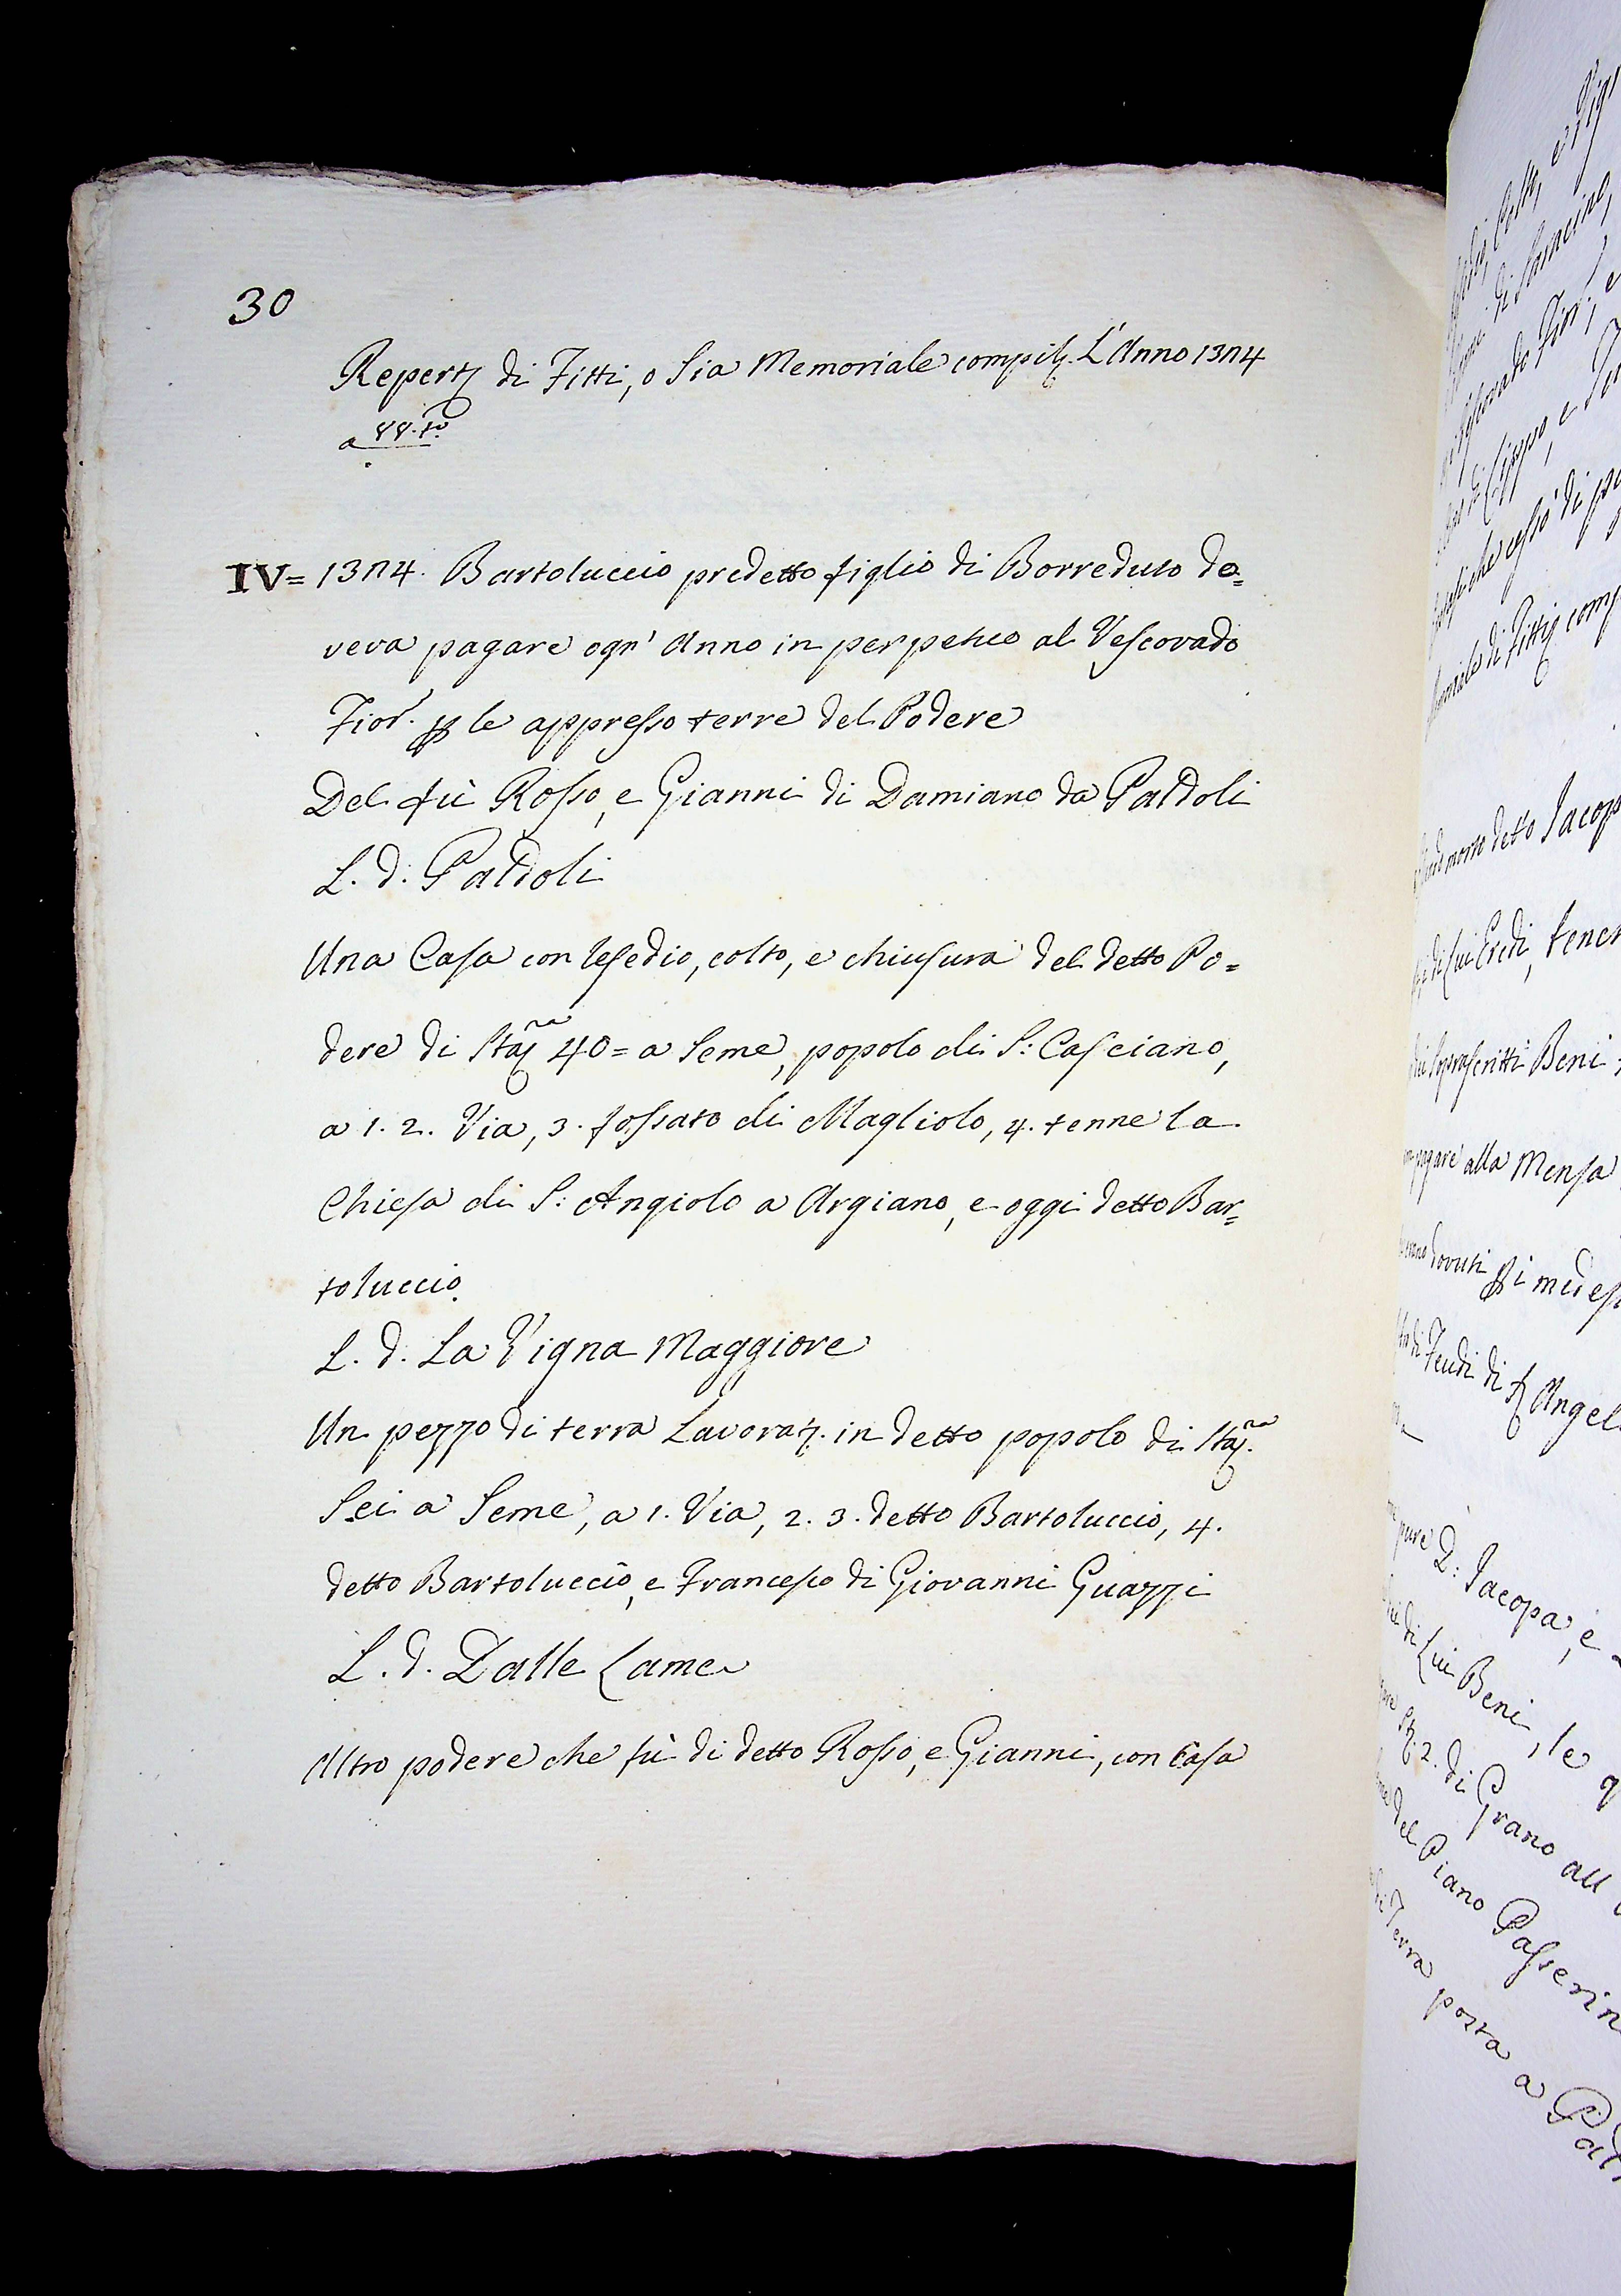 30
Repert. di Fitti, o sia Memoriale compil. L'Anno 1374
a 88. to
IV= 1374. Bartoluccio predetto figlio di Borreduto do=
veva pagare ogn' Anno in perpetuo al Vescovado
Fior. p le appresso terre del Podere
Del fù Rosso, e Gianni di Damiano da Paldoli
L. d. Paldoli
Una Casa con Resedio, colto, e chiusura del detto Po=
dere di Staj.ra 40= a Seme, popolo di S: Casciano,
a 1. 2. Via, 3. fossato di Magliolo, 4. tenne la
Chiesa di S: Angiolo a Argiano, e oggi detto Bar=
toluccio.
L. d. La Vigna Maggiore
Un pezzo di terra Lavorat. in detto popolo di Staj.ra
Sei a Seme, a 1. Via, 2. 3. detto Bartoluccio, 4.
detto Bartoluccio, e Francesco di Giovanni Guazzi
L. d. Dalle Lame
Altro podere che fù di detto Rosso, e Gianni, con Casa
morto detto Jacop
di Lui Eredi, tener
soprascritti Beni
pagare alla Mensa
dovuti p i medes
Feudi di Angel
pure D: Jacopa, e
di Lui Beni, le q
2. di Grano all
del Piano Passerin
Terra posta a Pal